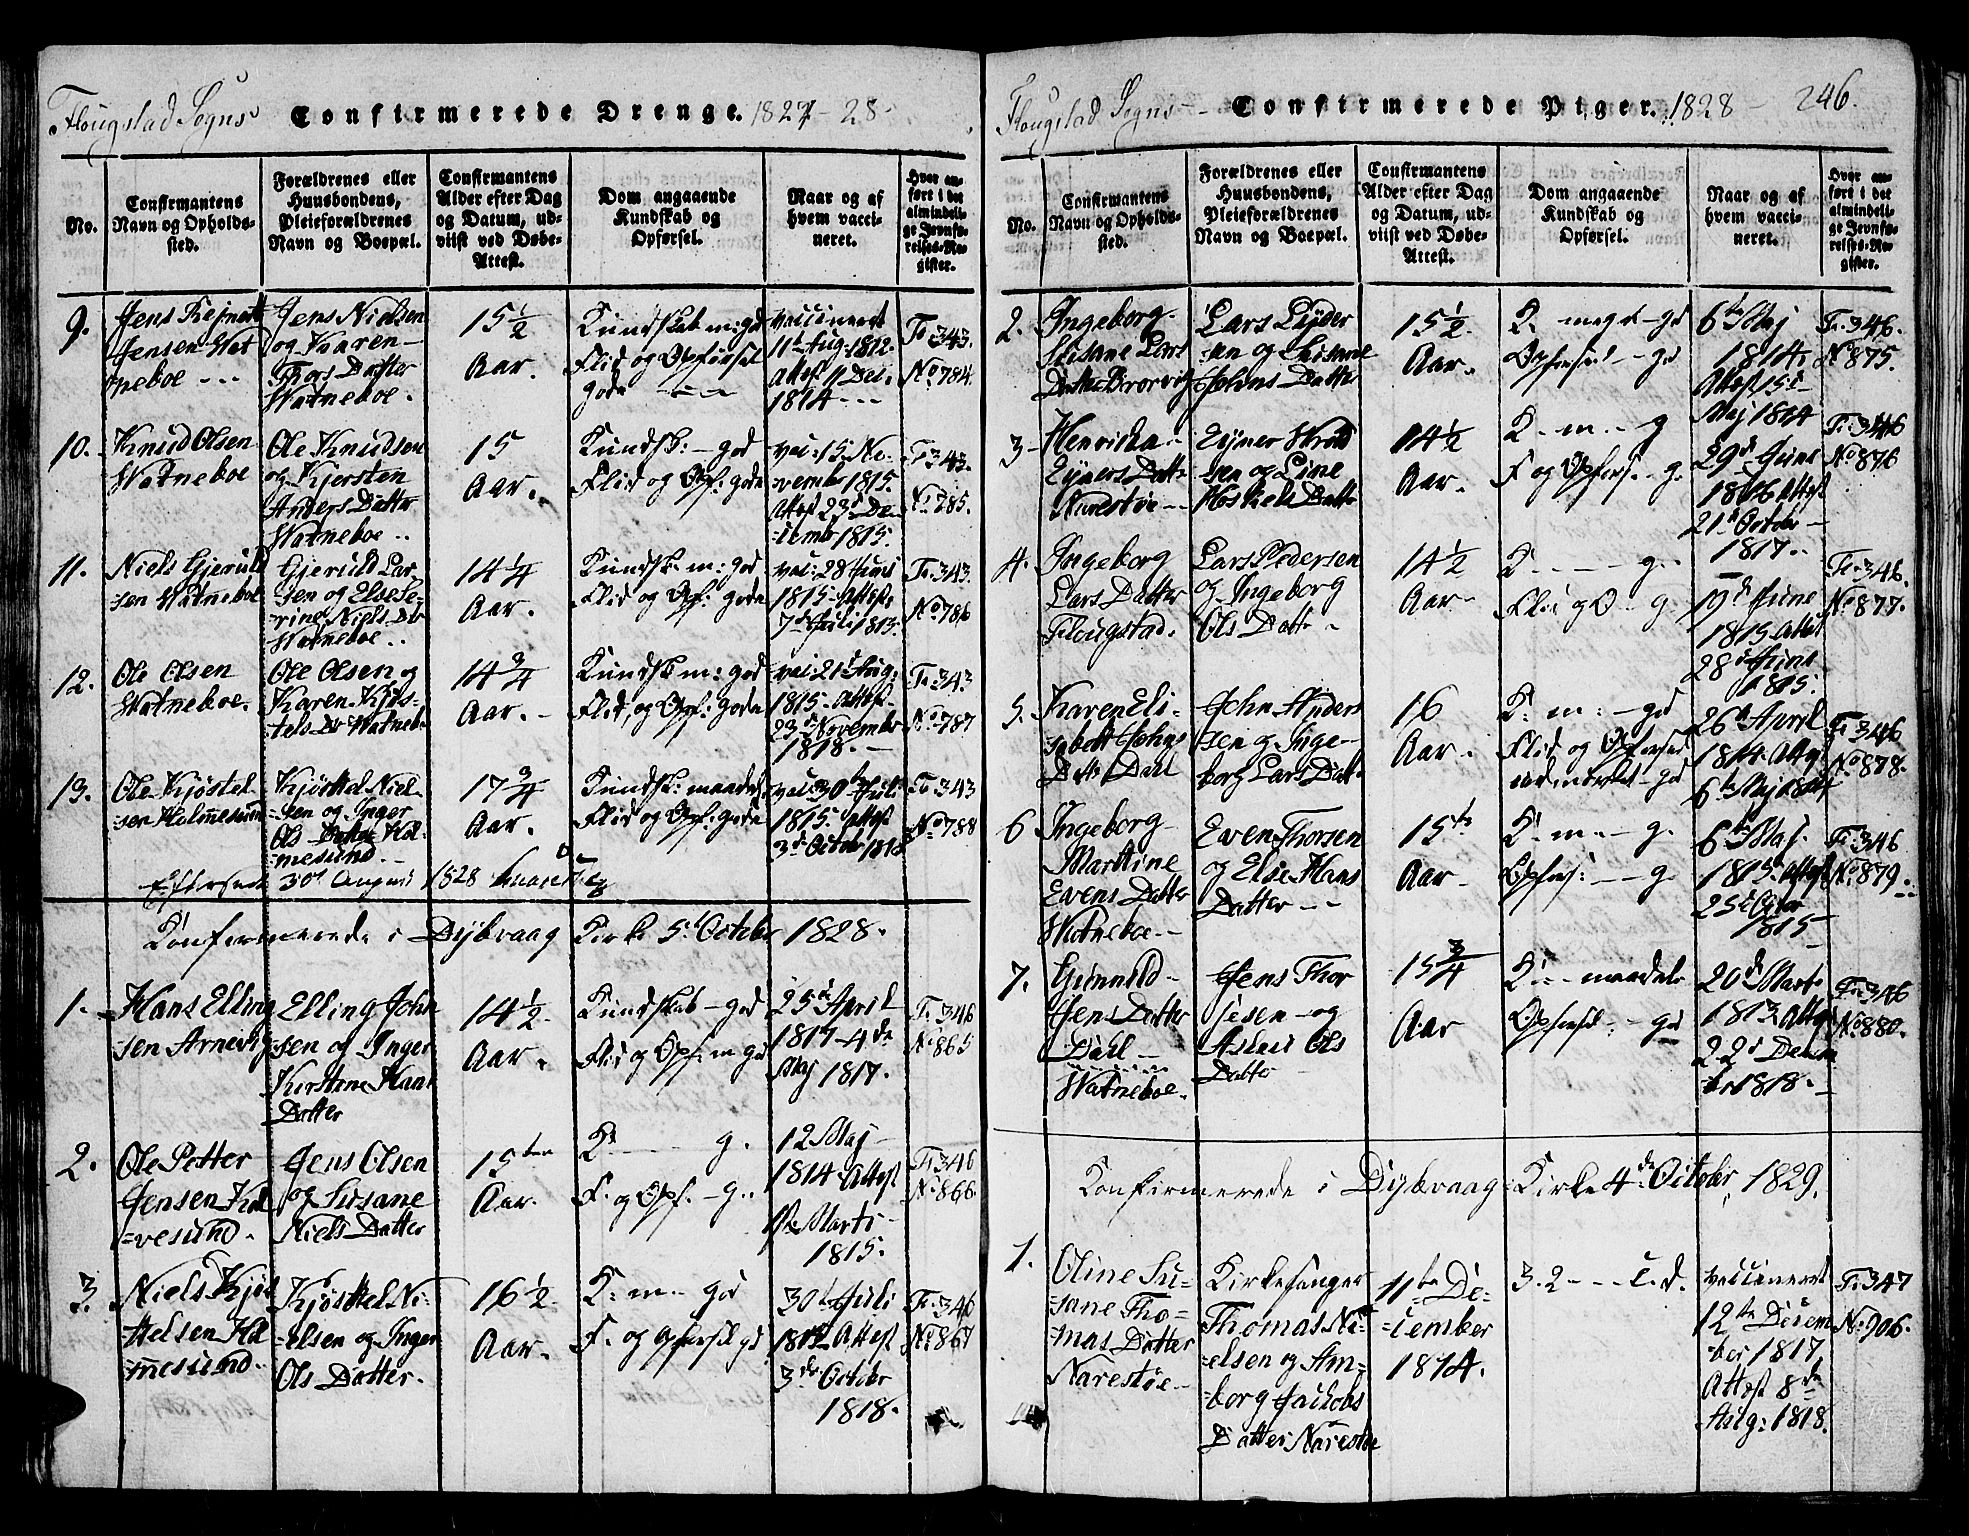 Flougstad Sogns Confirmerede Drenge. 1827-28-
No.
Confirmantens
Navn og Opholds-
sted.
Forældrenes eller
Huusbondens,
Pleieforældrenes
Navn og Boepæl.
Confirmantens
Alder efter Dag
og Datum, ud-
viist ved Døbe-
Attest.
Dom angaaende
Kundskab og
Opførsel.
Naar og af
hvem vacci-
neret.
Hvor an-
ført i det
almindeli-
ge Jevnfø-
relses-Re-
gister.
9.
Jens
Jensen Wat
neboe - - -
Jens Nielsen
og Karen
Thors Datter
Watneboe.
15 1/2
Aar.
Kundskab m: god
Flid og Opførsel
gode
vaccineret
11te Aug: 1812.
Attest 11 Dec.
1814 - - -
F: 343.
No 784.
10.
Knud Olsen
Watneboe
Ole Knudsen
og Kjersten
Anders Datter
Watneboe..
15
Aar.
Kundsk: - god
Flid og Opf: gode
vac: 15. No-
vembr 1815.
Attest 23d De-
cembr 1815.
F: 343.
No 785.
11.
Niels Gjeruld
sen Watneboe
Gjeruld Lar-
sen og Else Se-
rine Niels Dtr
Watneboe..
14 1/4
Aar.
Kundsk m: god
Flid og Opf: gode
vac: 28 Juni
1815. Attest
7de Juli 1815.
F: 343.
No 786
12.
Ole Olsen
Watneboe.
Ole Olsen og
Karen Kjøs-
tels Dr Watnebo
14 3/4
Aar. -
Kundsk m: god
Flid, og Opf: gode
vac: 21d Aug:
1815. Attest
23d Novembr
1818. -
F: 343
No 787
13.
Ole Kjøstel-
sen Holmesund
Kjøstel Niel-
sen og Inger
Ols Datter Hol-
mesund. -
17 3/4
Aar.
Kundsk: maadel:
Flid og Opf: gode
vac: 30te Juli
1815. Attest
3d Octobr 1818
F: 343
No 788
30d August 1828
Konfirmerede i Dybvaag Kirke 5d Octobr 1828.
1.
Hans Elling
sen Arnevig
Elling John
sen og Inger
Kirstine Hans
Datter
14 1/2
Aar.
Kundskab - god
Flid og Opf: m god
25d April
1817 - 4de
Maj 1817.
F: 346
No 865
2.
Ole Petter
Jensen Hal
=vesund.
Jens Olsen
og Susane
Niels Datter
15ten
Aar.
K - - - - g.
F. og Opf. - g..
12 Maj -
1814. Attest
Marti -
1815.
F: 346
No 866.
3.
Niels Kjøs
telsen Hol
=mesund.
Kjøstel Ni-
=elsen og Inger
Ols Datter.
16 1/2
Aar.
K: m - god
F. og Opførsel gd
30d Juli
1815 Attest
3de Octobr
1818.
F: 346
No 867
Flougstad Sogns - Confirmerede Piger. 1828 - 246.
No.
Confirmantens
Navn og Opholds-
sted.
Forældrenes eller
Huusbondens,
Pleieforældrenes
Navn og Boepæl.
Confirmantens
Alder efter Dag
og Datum, ud-
viist ved Døbe-
Attest.
Dom angaaende
Kundskab og
Opførsel.
Naar og af
hvem vacci-
neret.
Hvor an-
ført i det
almindeli-
ge Jevnfø-
relses-Re-
gister.
2.
Ingeborg
Susane Lars
Datter
Lars Lyder
sen og Susane
Johns Datter
15 1/2
Aar.
K. meget - gd
Opførsel - gd
6te Maj
1814.
Attest 15
Maj 1814
F: 346.
No 875.
3
Henricka
Ejners Dattr
Narestøe - -
Ejner
sen og Line
Datter
14 1/2
Aar.
K - m - - g
F og Opførs. - g.
29d Juni
1816 Attest
21d Octobr -
1817..
F: 346
No 876
4.
Ingeborg
Lars Datter
Flougstad.
Lars Pedersen
og Ingeborg
Ols Dattr -
14 1/2
Aar
K - - - - g.
Flid og O - g
19d June
1815. Attest
28d Juni
1815.
F: 346.
No 877.
5.
Karen Eli-
sabeth Johns
Dattr Dahl
John Anders
sen og Inge-
borg Lars Dattr
16
Aar.
K: m: - gd
Flid og Opførsel
udmærket - gd
26d April
1814. Attest
6te Maj 1814
F: 346
No 878.
6
Ingeborg
Marttine
Evens Datter
Watneboe. -
Even Thorsen
og Else Hans
Datter - -
15te
Aar
K. - m - - g.
Opførs: - - g.
6te Maj.
1815. Attest
25d
1815
F: 346
No 879..
7.
Gunnild
Jens Datter
Dahl -
Watneboe.
Jens Thor
jesen - og
Aslau Ols
Datter
15 3/4
Aar
K - - maadele
Opførsel: - gd
20d Marts
1813. Attest
22d Decem
br 1818. -
F: 346
No 880.
Konfirmerede i Dybvaag Kirke 4de Octobr 1829.
1.
Oline Su-
=sane Tho-
=mas Datter
Narestøe -
Kirkesanger
Thomas Ni-
=elsen og Am-
=borg Jacobs
Datter Narestøe
11te De-
=cember
1814.
3.2 - - -
vaccineret
12te Decem
ber 1817.
Attest 8de
Aug: 1818.
F: 347
No 906.